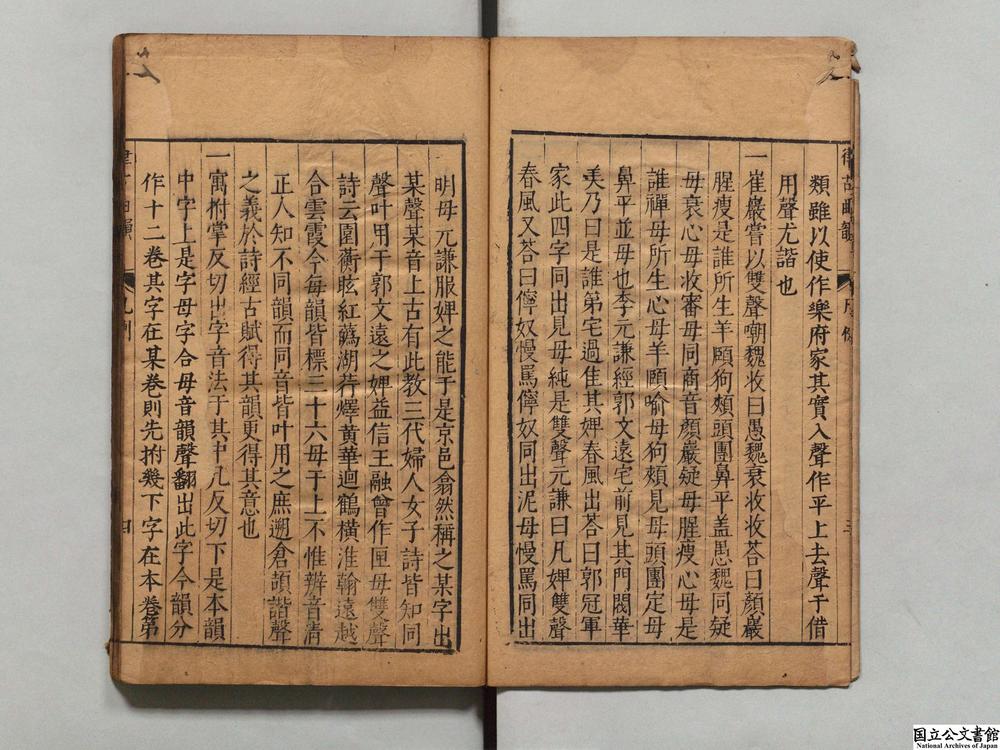 類雖以使作樂府家其實入聲作平上去聲于借
用聲尤諧也
一崔巖嘗以雙聲嘲魏收曰愚魏衰收收荅曰顏巖
腥瘦是誰所生羊頤狗頰頭團鼻平盖愚魏同疑
母衰心母收審母同商音顏巖疑母腥瘦心母是
誰禪母所生心母羊頤喻母狗頰見母頭團定母
鼻平並母也李元謙經郭文遠宅前見其門閥華
美乃曰是誰第宅過隹其婢春風出荅曰郭冠軍
家此四字同出見母純是雙聲元謙曰凡婢雙聲
春風又荅曰儜奴慢罵儜奴同出泥母慢罵同出
明母元謙服婢之能于是京邑翕然稱之某字出
某聲某音上古有此教三代婦人女子詩皆知同
聲叶用于郭文遠之婢益信王融曾作匣母雙聲
詩云園蘅眩紅蘤湖荇燡黄華迴鶴橫淮翰遠越
合雲霞今每韻皆標三十六母于上不惟辨音清
正人知不同韻而同音皆叶用之庶遡倉頡諧聲
之義於詩經古賦得其韻更得其意也
一寓拊掌反切出字音法于其中凡反切下是本韻
中字上是字母字合母音韻聲翻出此字今韻分
作十二卷其字在某卷則先拊幾下字在本卷第
凡例
四
三
国立公文書館
National Archives of Japan